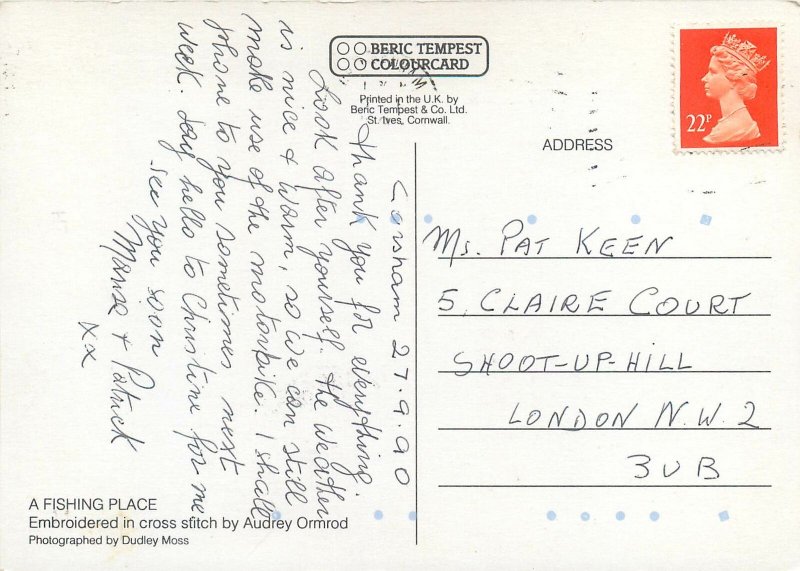 BERIC TEMPEST
COLOURCARD
Printed in the U.K. by
Beric Tempest & Co. Ltd.
St. Ives, Cornwall.
22P
ADDRESS
Corsham 27.9.90
Thank you for everything.
Look after yourself. The weather
is nice & warm, so we can still
make use of the motorbike. I shall
phone to you sometimes next
week. Say hello to Christine for me
see you soon
& Patrick
xx
Ms. PAT KEEN
5, CLAIRE COURT
SHOOT-UP-HILL
LONDON N.W.2
3UB
A FISHING PLACE
Embroidered in cross stitch by Audrey Ormrod
Photographed by Dudley Moss